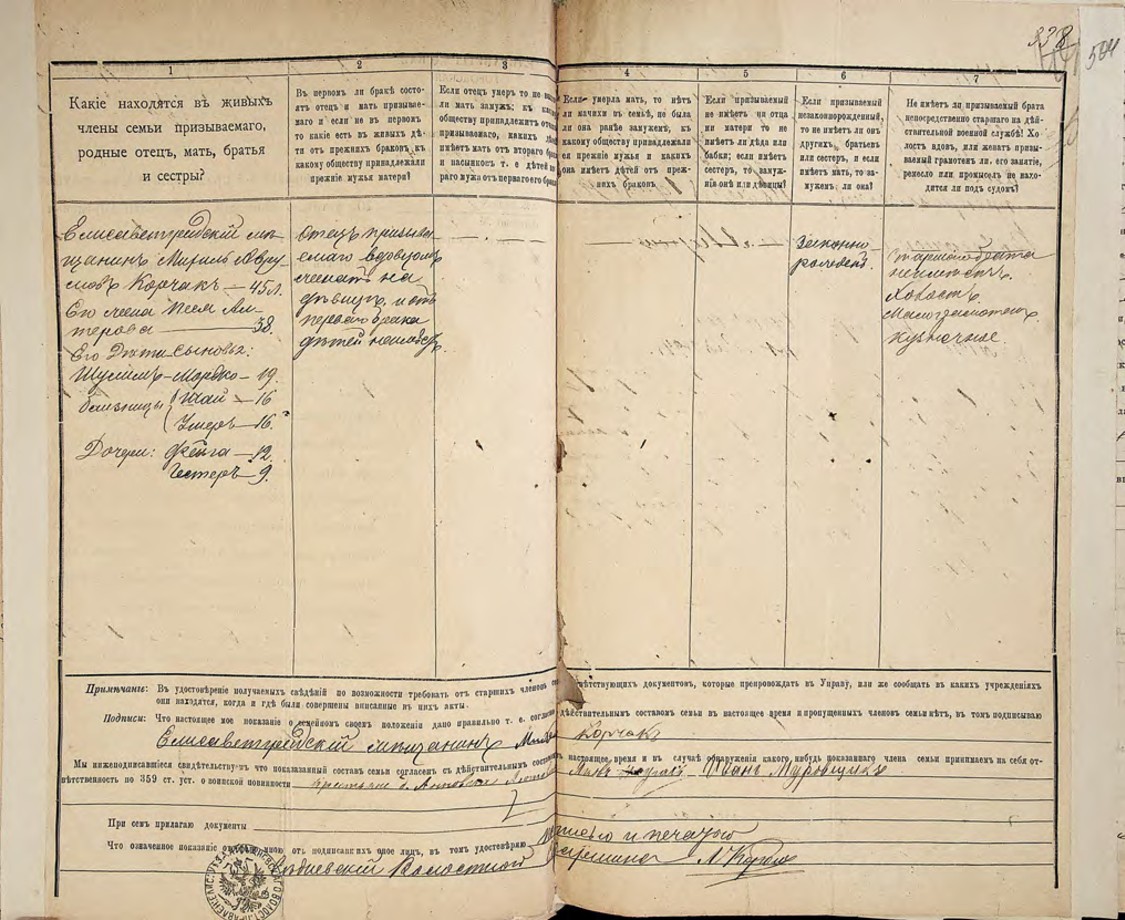 338
504
1
2
3
4
5
6
7
Какіе находятся въ живыхъ
члены семьи призываемаго,
родные отецъ, мать, братья
и сестры?
Въ первомъ ли бракѣ состо-
ятъ отецъ и мать призывае-
маго и если не въ первомъ
то какіе есть въ живыхъ дѣ-
ти отъ прежнихъ браковъ къ
какому обществу принадлежали
прежніе мужья матери?
Если отецъ умеръ то не
ли мать замужъ; къ
обществу принадлежитъ
призываемаго, какихъ
имѣетъ мать отъ втораго
и насынокъ т. е. дѣтей
раго мужа отъ перваго его
Если умерла мать, то нѣтъ
ли мачихи въ семьѣ, не была
ли она ранѣе замужемъ; къ
какому обществу принадлежали
ея прежніе мужья и какихъ
она имѣетъ дѣтей отъ преж-
нихъ браковъ
Если призываемый
не имѣетъ ни отца
ни матери то не
имѣетъ ли дѣда или
бабки; если имѣетъ
сестеръ, то замуж-
нія онѣ или дѣвицы?
Если призываемый
незаконнорожденный,
то не имѣетъ ли онъ
другихъ, братьевъ
или сестеръ, и если
имѣетъ мать, то за-
мужемъ ли она?
Не имѣетъ ли призываемый брата
непосредственно старшаго на дѣй-
ствительной военной службѣ? Хо-
лостъ вдовъ, или женатъ призы-
ваемый грамотенъ ли, его занятіе,
ремесло или промыселъ не нахо-
дится ли подъ судомъ?
Елисаветградскій мѣ-
щанинъ Авру-
мовъ Корчакъ — 45 л.
Его жена Песя Ал-
терова — 38.
Его Дѣти Сыновья:
Шулимъ-Мордко — 19.
близнецы Шай — 16
Умеръ — 16.
Дочери: Фейга — 12.
Гестеръ — 9.
Отецъ призыва-
емаго вдовцомъ
женатъ на
дѣвицѣ, и отъ
перваго брака
дѣтей не имѣетъ.
законно-
рожденъ.
старшаго брата
не имѣетъ.
Холостъ.
Малограмотенъ.
кузнечные.
Примѣчаніе: Въ удостовѣреніе получаемыхъ свѣдѣній по возможности требовать отъ старшихъ членовъ документовъ, которые препровождать въ Управу, или же сообщать въ какихъ учрежденіяхъ
они находятся, когда и гдѣ были совершены вписанные въ нихъ акты.
Подписи: Что настоящее мое показаніе о семейномъ своемъ положеніи дано правильно т. е. согласно дѣйствительнымъ составомъ семьи въ настоящее время и пропущенныхъ членовъ семьи нѣтъ, въ томъ подписываю
Елисаветградскій мѣщанинъ Корчакъ
Мы нижеподписавшіеся свидѣтельствуемъ что показанный составъ семьи согласенъ съ дѣйствительнымъ настоящее время и въ случаѣ обнаруженія какого нибудь непоказаннаго члена семьи принимаемъ на себя от-
вѣтственность по 359 ст. уст. о воинской повинности крестьяне Иванъ Муровщикъ
При семъ прилагаю документы
Что означенное показаніе мною отъ подписавшихъ оное лицъ, въ томъ удостовѣряю и печатью
Волостного Старшина